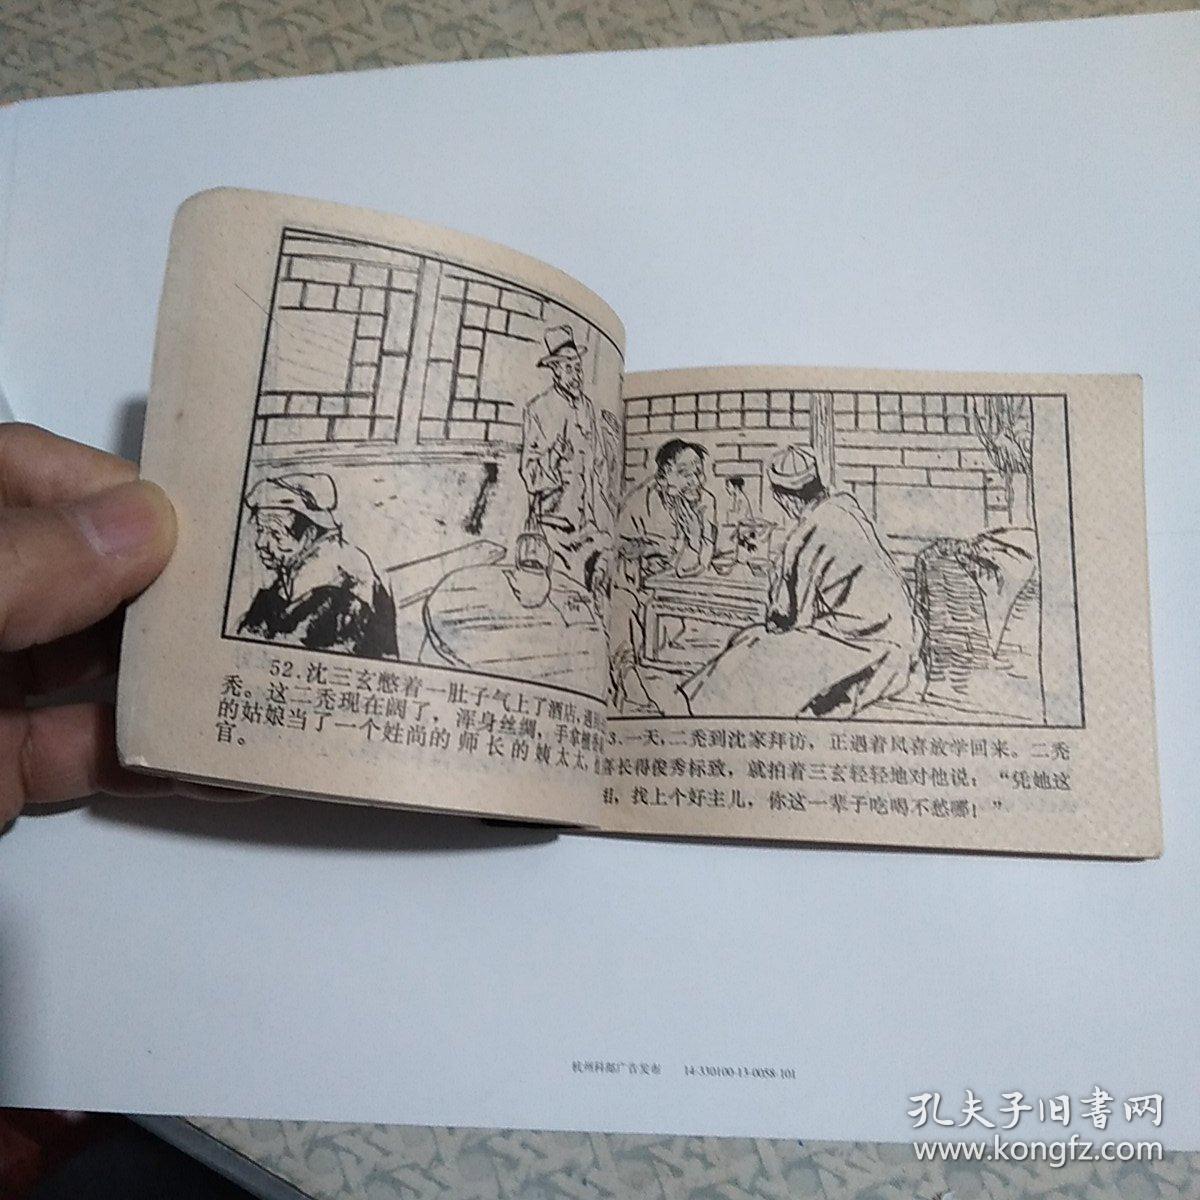 52.沈三玄憋着一肚子气上了酒店,遇
秃。这二秃现在阔了,浑身丝绸,手拿
的姑娘当了一个姓尚的师长的姨太太,
官。
3.一天,二秃到沈家拜访,正遇着凤喜放学回来。二秃
喜长得俊秀标致,就拍着三玄轻轻地对他说:“凭她这
相,找上个好主儿,你这一辈子吃喝不愁哪!”
杭州科邮广告发布 14-330100-13-0058-101
孔夫子旧书网
www.kongfz.com